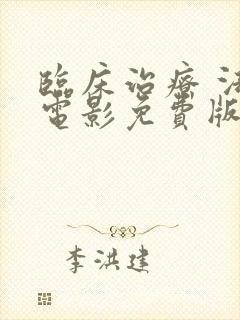 臨床治療 法
電影免費版
李洪建